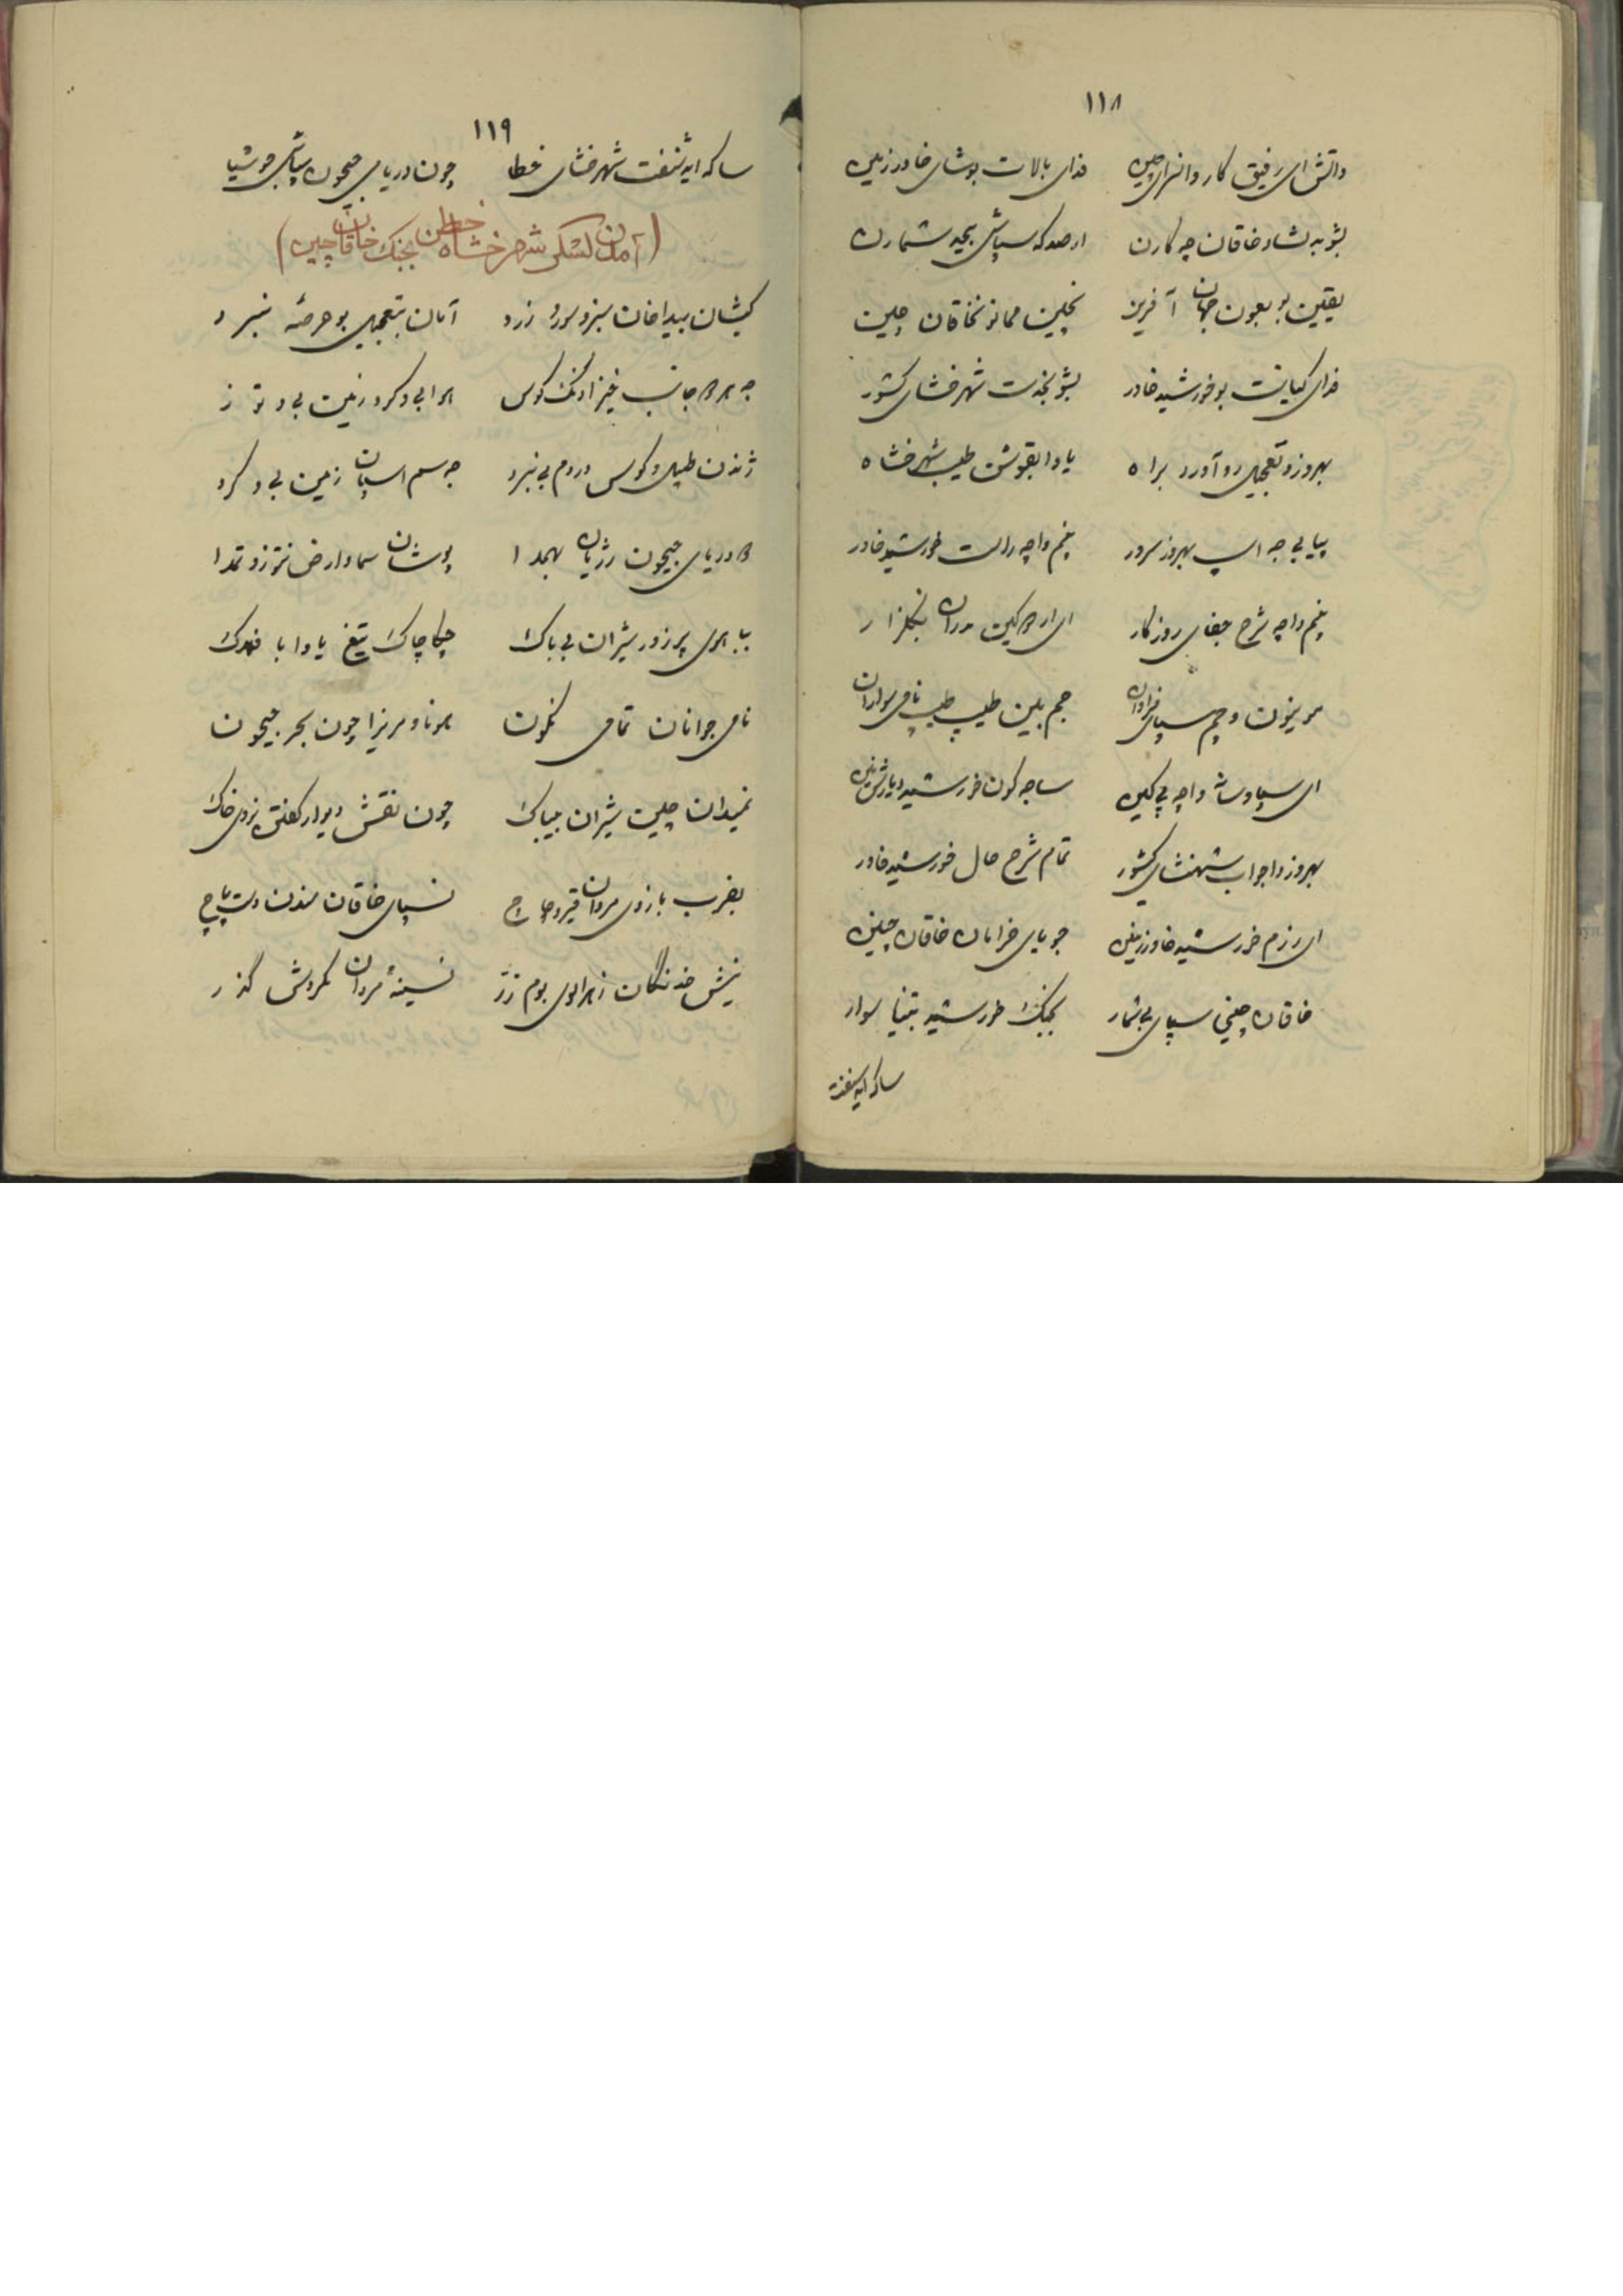 ١١٨
واتش ای رفیق کار وانسرای چین فدای بالات بوشای خاور زمین
بشو به لشاد خاقان چه کارن ار صد که سپاش بیحد شمارن
یقین بو بعون جهان آفرین نچین ممانو نخاقان چین
فدای کیانت بو خورشید خاور بشو بخدمت شهرخشای کشور
بهروز و تعجیل رو آورد براه یاوا بقوشن طیب شهرخشاه
پیا بی جه اسپ بهروز سرور پنم واچه راست خورشید خاور
پنم واچه شرح جفای روزکار ای اراده کین مدران بکلزار
مریزون و چم سپای فراوان جم بین طیب طیب نامی سواران
ای سپاوسانه واچه پی کین ساجه کون خورشید دیار شین
بهروز واجواب شهنشای کشور تمام شرح حال خورشید خاور
ای رزم خورشید خاور زمین جویای خرامان خاقان چین
خاقان چینی سپای بی شمار بجنک خورشید تنیا سوار
ساکه اید شنفت
١١٩
ساکه اید شنفت شهرخشای خطا چون دریای جیحون سپاش جوشیا
(آمدن لشکر شهرخشاه خطن بجنک خاقان چین)
کیشان بیداخان سبز و سور و زرد آمان بتعجیل بو عرصه نبرد
جه هر جانب خیزا دنک کوس هوا بی و کرد زمین بی و توز
ژندن طبل و کوس و دم پی نبرد جه سم اسپان زمین بی و کرد
دریای جیحون رژیان بهمدا پوشان سما و ارض نتوز و تمدا
بباهوی پر زور شیران بی باک چکاچاک تیغ یاوا با فلک
نامی جوانان تمامی نکون هونا و مریزا چون بحر جیحون
نمیدان چین شیران بیباک چون نقش دیوار کفتن نروی خاک
بضرب بازوی مردان قیر و چاج نسپای خاقان مندن دست پاچ
نیش خدنکان زهرالوی بوم زژ نسینهٔ مردان مکردش گذر